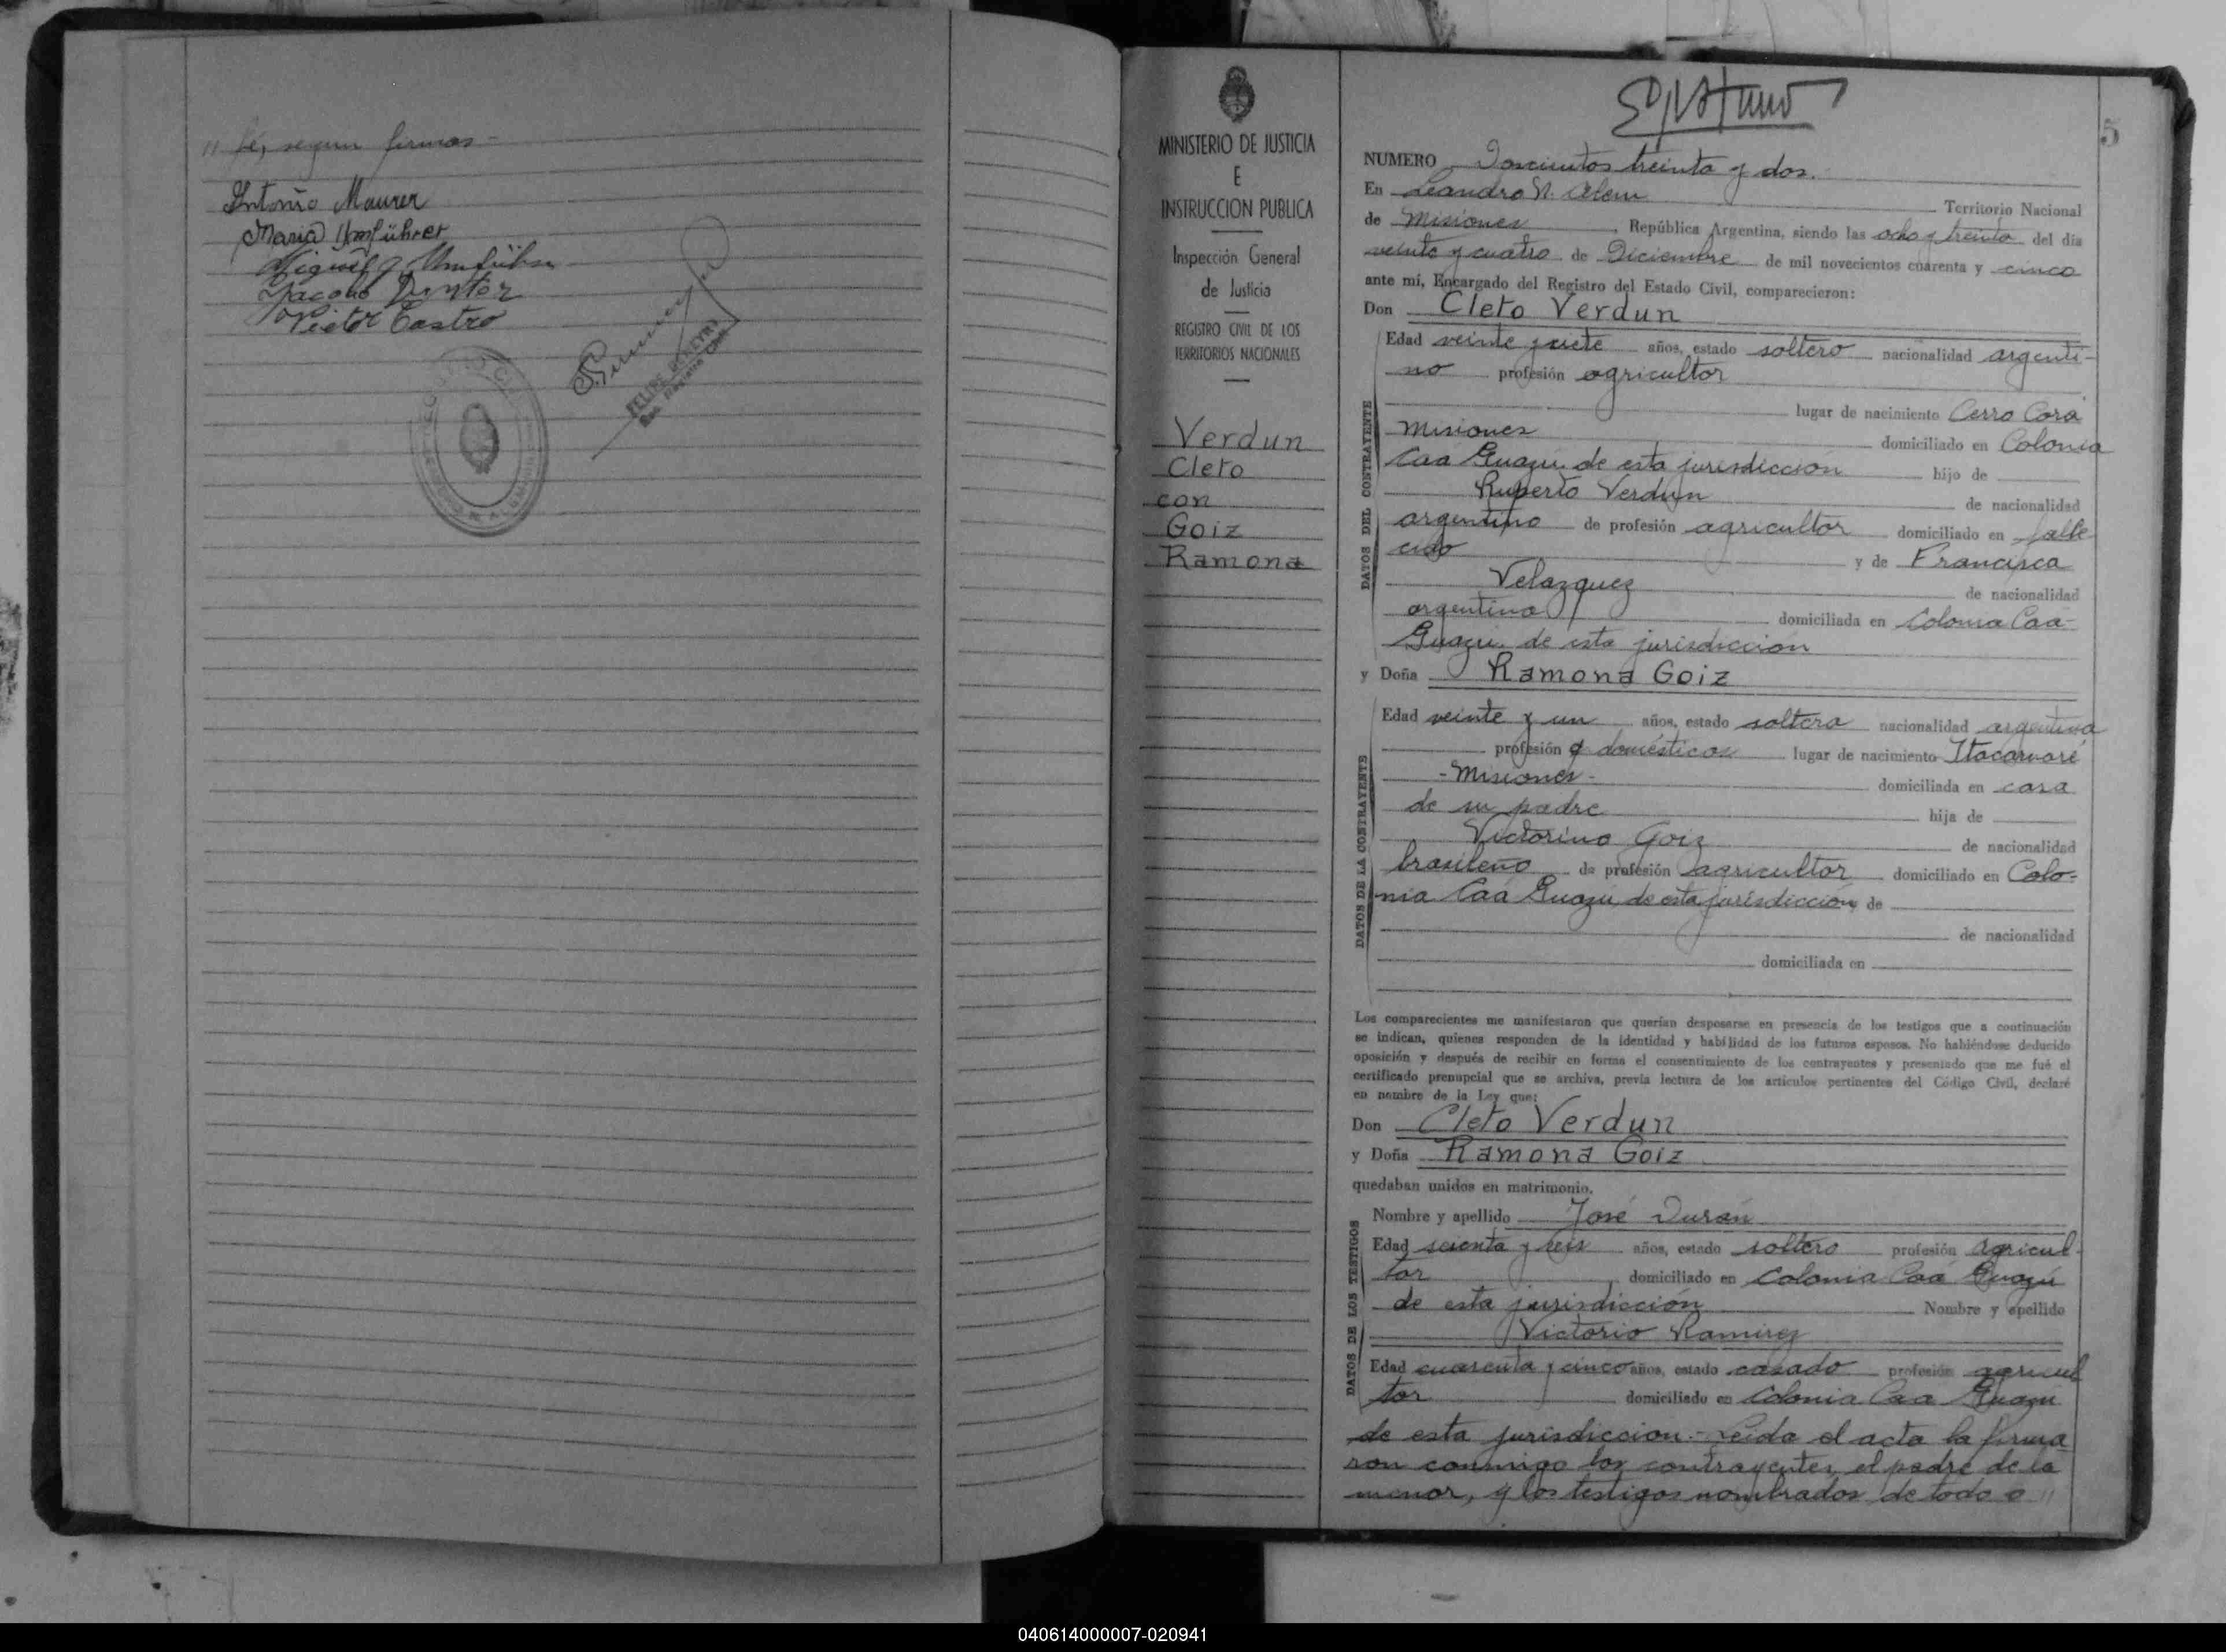 " fé, segun firmas -
Antonio Maurer
Maria Umführer
Miguel J. Umführer
Jacobo
Victor Castro
REGISTRO CIVIL
FELIPE
MINISTERIO DE JUSTICIA
E
INSTRUCCION PUBLICA
Inspección General
de Justicia
REGISTRO CIVIL DE LOS
TERRITORIOS NACIONALES
Verdun
Cleto
con
Goiz
Ramona
5
NUMERO Doscientos treinta y dos.
En Leandro N. Alem Territorio Nacional
de Misiones, República Argentina, siendo las ocho y treinta del día
veinte y cuatro de Diciembre de mil novecientos cuarenta y cinco
ante mí, Encargado del Registro del Estado Civil, comparecieron:
Don Cleto Verdun
DATOS DEL CONTRAYENTE
Edad veinte y siete años, estado soltero nacionalidad argenti-
no profesión agricultor
lugar de nacimiento Cerro Corá
Misiones domiciliado en Colonia
Caa Guazú de esta jurisdicción hijo de
Ruperto Verdun de nacionalidad
argentino de profesión agricultor domiciliado en falle-
cido y de Francisca
Velazquez de nacionalidad
argentina domiciliada en Colonia Caa-
Guazu de esta jurisdicción
y Doña Ramona Goiz
DATOS DE LA CONTRAYENTE
Edad veinte y un años, estado soltera nacionalidad argentina
profesión q domésticos lugar de nacimiento Itacaruaré
- Misiones - domiciliada en casa
de su padre hija de
Victorino Goiz de nacionalidad
brasileño de profesión agricultor domiciliado en Colo-
nia Caá Guazú, de esta jurisdicción y de
de nacionalidad
domiciliada en
Los comparecientes me manifestaron que querían desposarse en presencia de los testigos que a continuación
se indican, quienes responden de la identidad y habilidad de los futuros esposos. No habiéndose deducido
oposición y después de recibir en forma el consentimiento de los contrayentes y presentado que me fué el
certificado prenupcial que se archiva, previa lectura de los artículos pertinentes del Código Civil, declaré
en nombre de la Ley que:
Don Cleto Verdun
y Doña Ramona Goiz
quedaban unidos en matrimonio.
DATOS DE LOS TESTIGOS
Nombre y apellido José Durán
Edad sesenta y seis años, estado soltero profesión agricul-
tor domiciliado en Colonia Caa Guazú
de esta jurisdicción Nombre y apellido
Victorio Ramirez
Edad cuarenta y cinco años, estado casado profesión agricul
tor domiciliado en Colonia Caa Guazu
de esta jurisdiccion.- Leida el acta la firma
ron conmigo los contrayentes, el padre de la
menor, y los testigos nombrados de todo o "
040614000007-020941